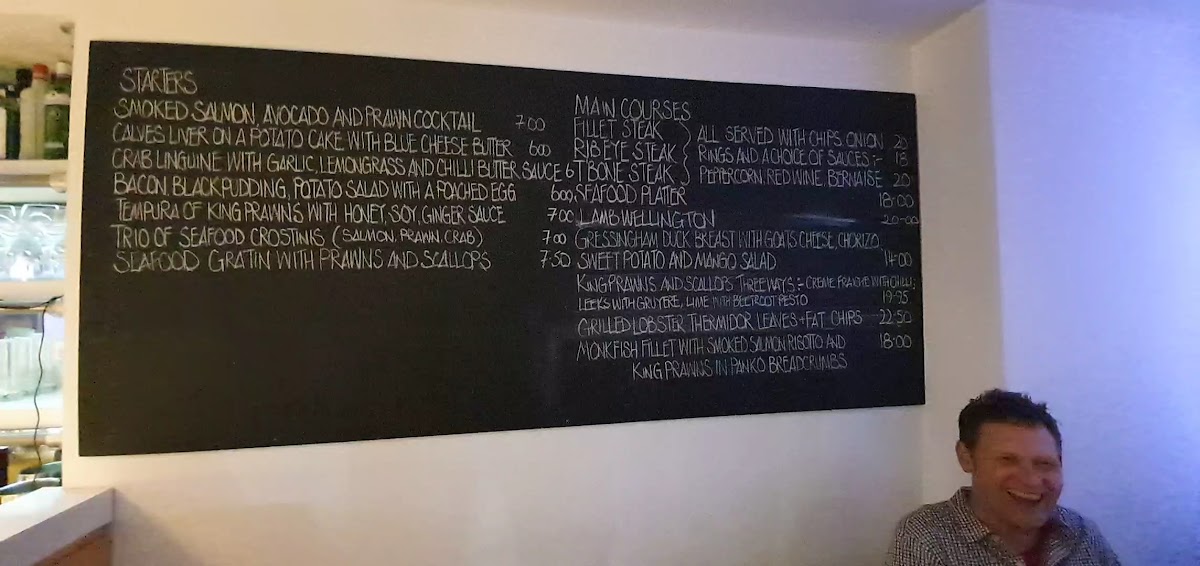 STARTERS
SMOKED SALMON, AVOCADO AND PRAWN COCKTAIL 7.00
CALVES LIVER ON A POTATO CAKE WITH BLUE CHEESE BUTTER 6.00
CRAB LINGUINE WITH GARLIC, LEMONGRASS AND CHILLI BUTTER SAUCE 6
BACON, BLACK PUDDING, POTATO SALAD WITH A POACHED EGG 6.00
TEMPURA OF KING PRAWNS WITH HONEY, SOY, GINGER SAUCE 7.00
TRIO OF SEAFOOD CROSTINIS (SALMON, PRAWN, CRAB) 7.00
SEAFOOD GRATIN WITH PRAWNS AND SCALLOPS 7.50
MAIN COURSES
FILLET STEAK } ALL SERVED WITH CHIPS, ONION 20
RIBEYE STEAK } RINGS AND A CHOICE OF SAUCES :- 18
T BONE STEAK } PEPPERCORN, RED WINE, BERNAISE 20
SEAFOOD PLATTER 18.00
LAMB WELLINGTON 20.00
GRESSINGHAM DUCK BREAST WITH GOATS CHEESE, CHORIZO,
SWEET POTATO AND MANGO SALAD 14.00
KING PRAWNS AND SCALLOPS THREE WAYS :- CREME FRAICHE WITH CHILLI,
LEEKS WITH GRUYERE, LIME WITH BEETROOT PESTO 19.95
GRILLED LOBSTER THERMIDOR LEAVES + FAT CHIPS 22.50
MONKFISH FILLET WITH SMOKED SALMON RISOTTO AND 18.00
KING PRAWNS IN PANKO BREADCRUMBS